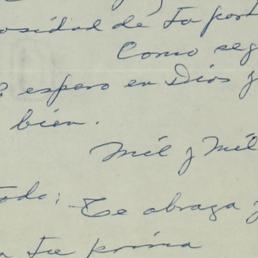 osidad de tu post
Como seg
espero en Dios y
bien.
Mil y Mil
Todo; Te abraza y
a tu prima